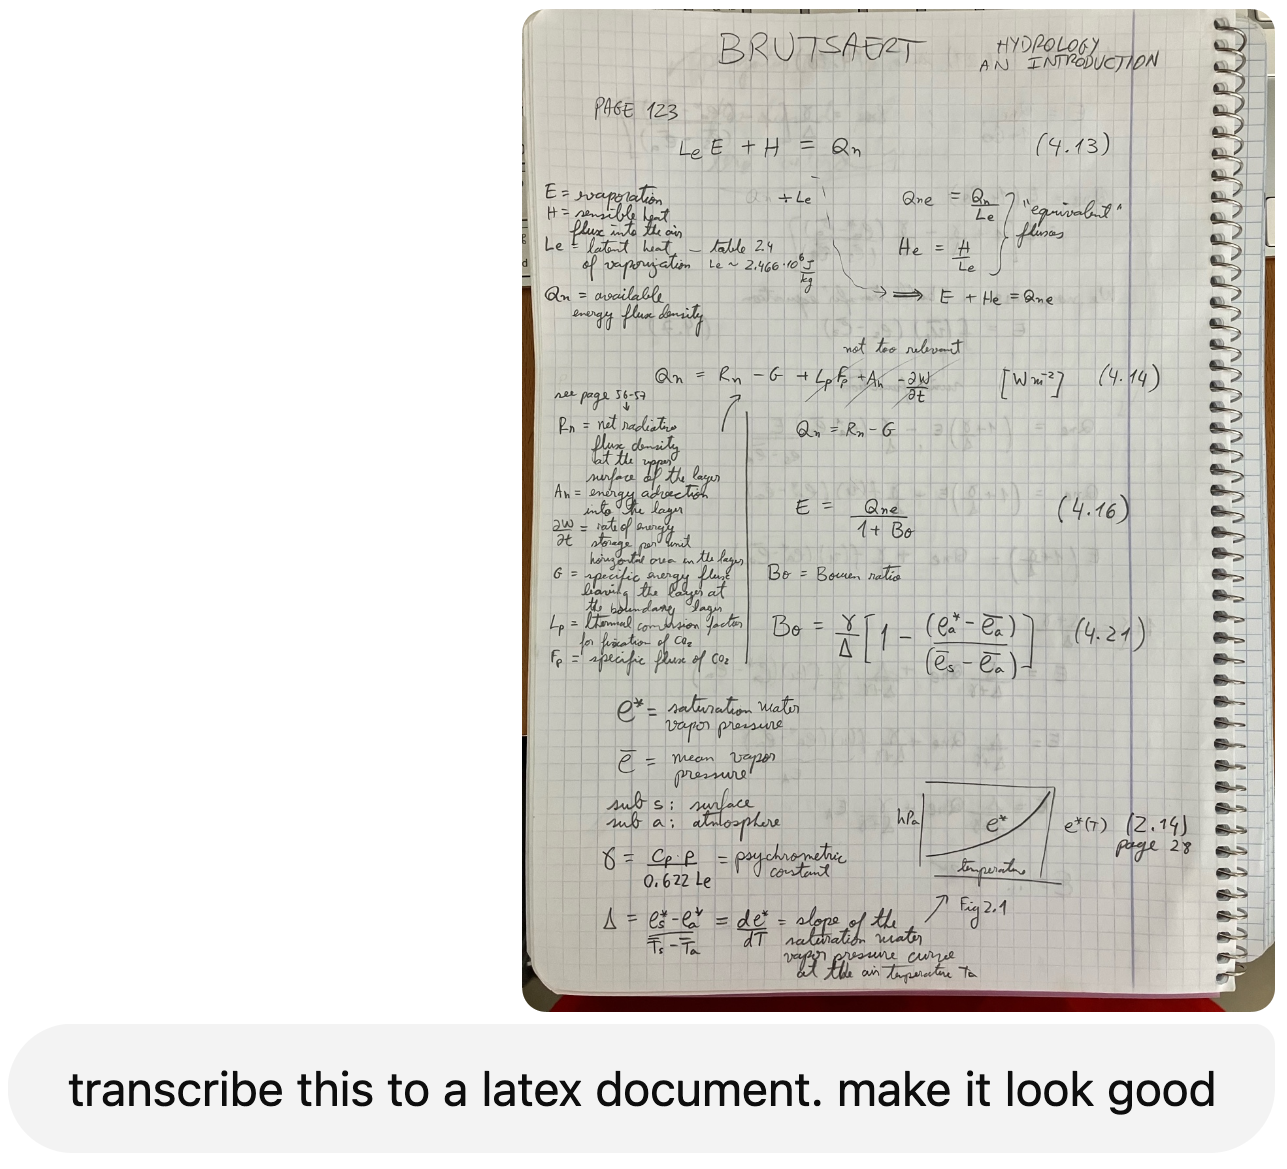 BRUTSAERT
HYDROLOGY
AN INTRODUCTION
PAGE 123
Le E + H = Qn (4.13)
E = evaporation
H = sensible heat
flux into the air
Le = latent heat – table 2.4
of vaporization Le ~ 2.466·10⁶ J/kg
Qn = available
energy flux density
÷ Le
Qne = Qn/Le
He = H/Le
"equivalent"
fluxes
⟹ E + He = Qne
not too relevant
Qn = Rn − G + Lp Fp + An − ∂W/∂t [W m⁻²] (4.14)
see page 56-57
Rn = net radiative
flux density
at the upper
surface of the layer
An = energy advection
into the layer
∂W/∂t = rate of energy
storage per unit
horizontal area in the layer
G = specific energy flux
leaving the layer at
the boundary layer
Lp = thermal conversion factor
for fixation of CO₂
Fp = specific flux of CO₂
Qn = Rn − G
E = Qne / (1 + Bo) (4.16)
Bo = Bowen ratio
Bo = γ/Δ [1 − (e*a − ēa)/(ēs − ēa)] (4.21)
e* = saturation water
vapor pressure
ē = mean vapor
pressure
sub s: surface
sub a: atmosphere
γ = Cp·p / 0.622 Le = psychrometric
constant
Δ = (e*s − e*a)/(T̄s − T̄a) = de*/dT = slope of the
saturation water
vapor pressure curve
at the air temperature Ta
hPa
e*
temperature
e*(T) (2.14)
page 28
Fig 2.1
transcribe this to a latex document. make it look good